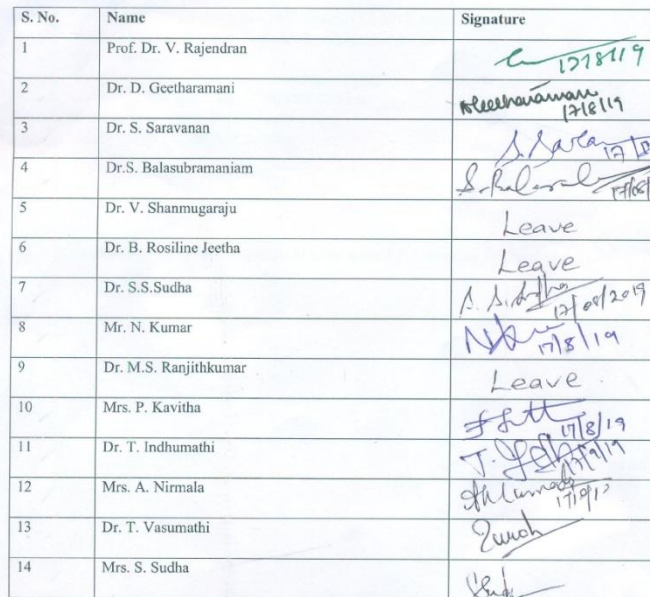 S. No. Name Signature
1 Prof. Dr. V. Rajendran 17/8/19
2 Dr. D. Geetharamani 17/8/19
3 Dr. S. Saravanan S. Sara
4 Dr.S. Balasubramaniam
5 Dr. V. Shanmugaraju Leave
6 Dr. B. Rosiline Jeetha Leave
7 Dr. S.S.Sudha 17/08/2019
8 Mr. N. Kumar 17/8/19
9 Dr. M.S. Ranjithkumar Leave
10 Mrs. P. Kavitha 17/8/19
11 Dr. T. Indhumathi
12 Mrs. A. Nirmala
13 Dr. T. Vasumathi
14 Mrs. S. Sudha